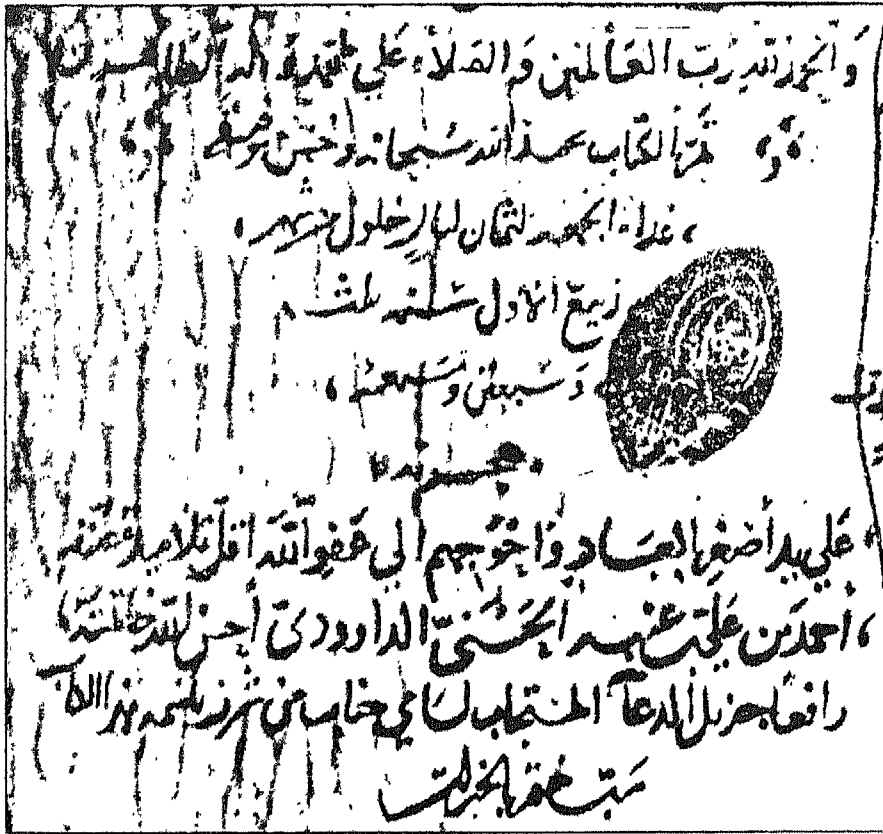 والحمد لله رب العالمين والصلاة على محمد وآله الطاهرين
تم الكتاب بحمد الله سبحانه وحسن توفيقه
غداة الجمعة لثمان ليال خلون من شهر
ربيع الأول سنة ثلث
وسبعين وسبعمئة
على يد أصغر العباد وأحوجهم إلى عفو الله أقل تلاميذ مصنفه
أحمد بن علي بن عنبه الحسني الداوودي أحسن الله خاتمته
رافعا جزيل الدعاء المستجاب لسامي جناب من شرف بنسخه هذا الكتاب